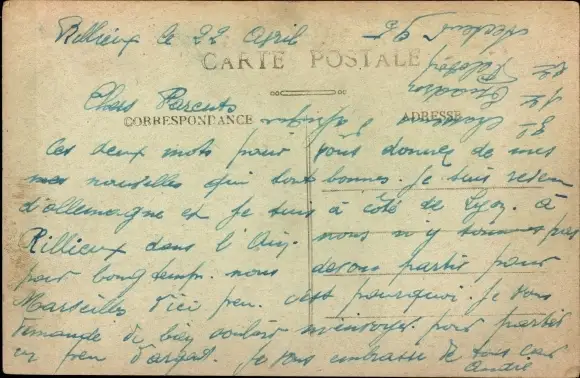 Rillieux le 22 Avril
CARTE POSTALE
Chers Parents
CORRESPONDANCE
ADRESSE
Ces deux mots pour vous donner de mes
nouvelles qui sont bonnes. Je suis
d'allemagne et je suis à côté de Lyon. à
Rillieux dans l'Ain. nous n'y sommes pas
pour longtemp. nous devons partir pour
Marseilles d'ici peu. c'est pourquoi. je vous
demande de bien vouloir m'envoyer pour partir
un peu d'argent. Je vous embrasse de tous
André